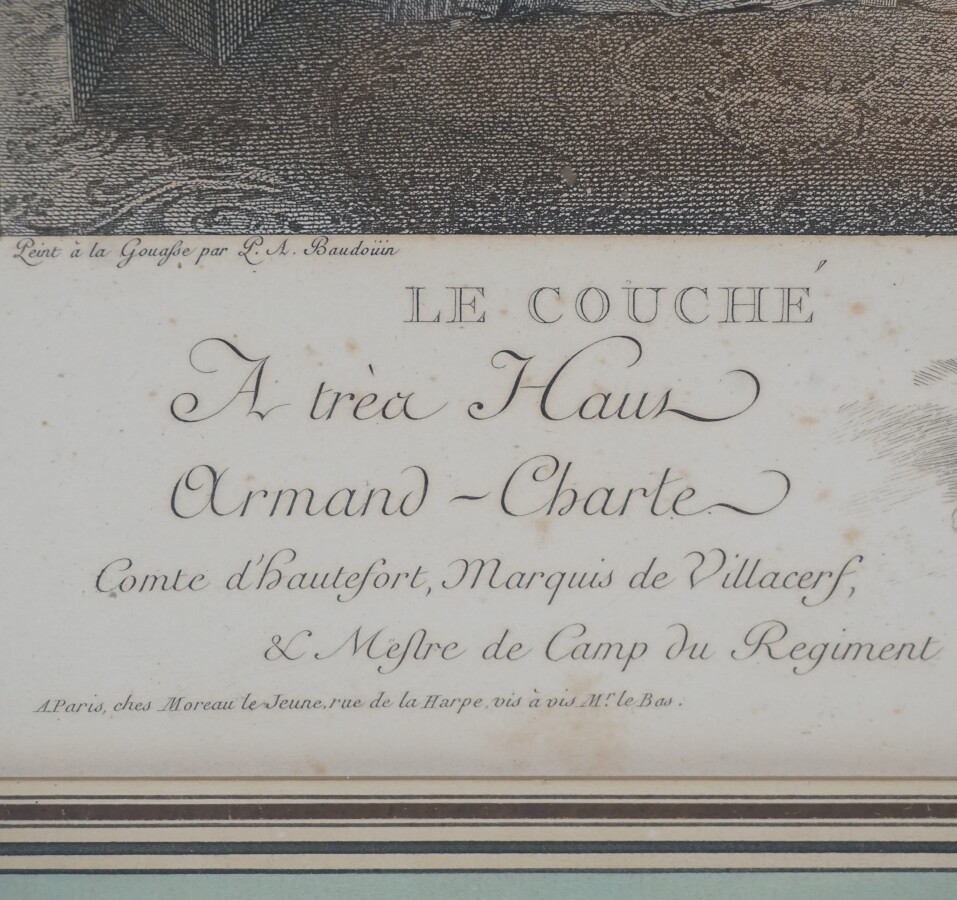 Peint à la Gouasse par P. A. Baudoüin
LE COUCHÉ
A très Haut
Armand-Charle
Comte d'hautefort, Marquis de Villacerf,
& Mestre de Camp du Regiment
A Paris, ches Moreau le Jeune, rue de la Harpe, vis à vis Mr. le Bas.